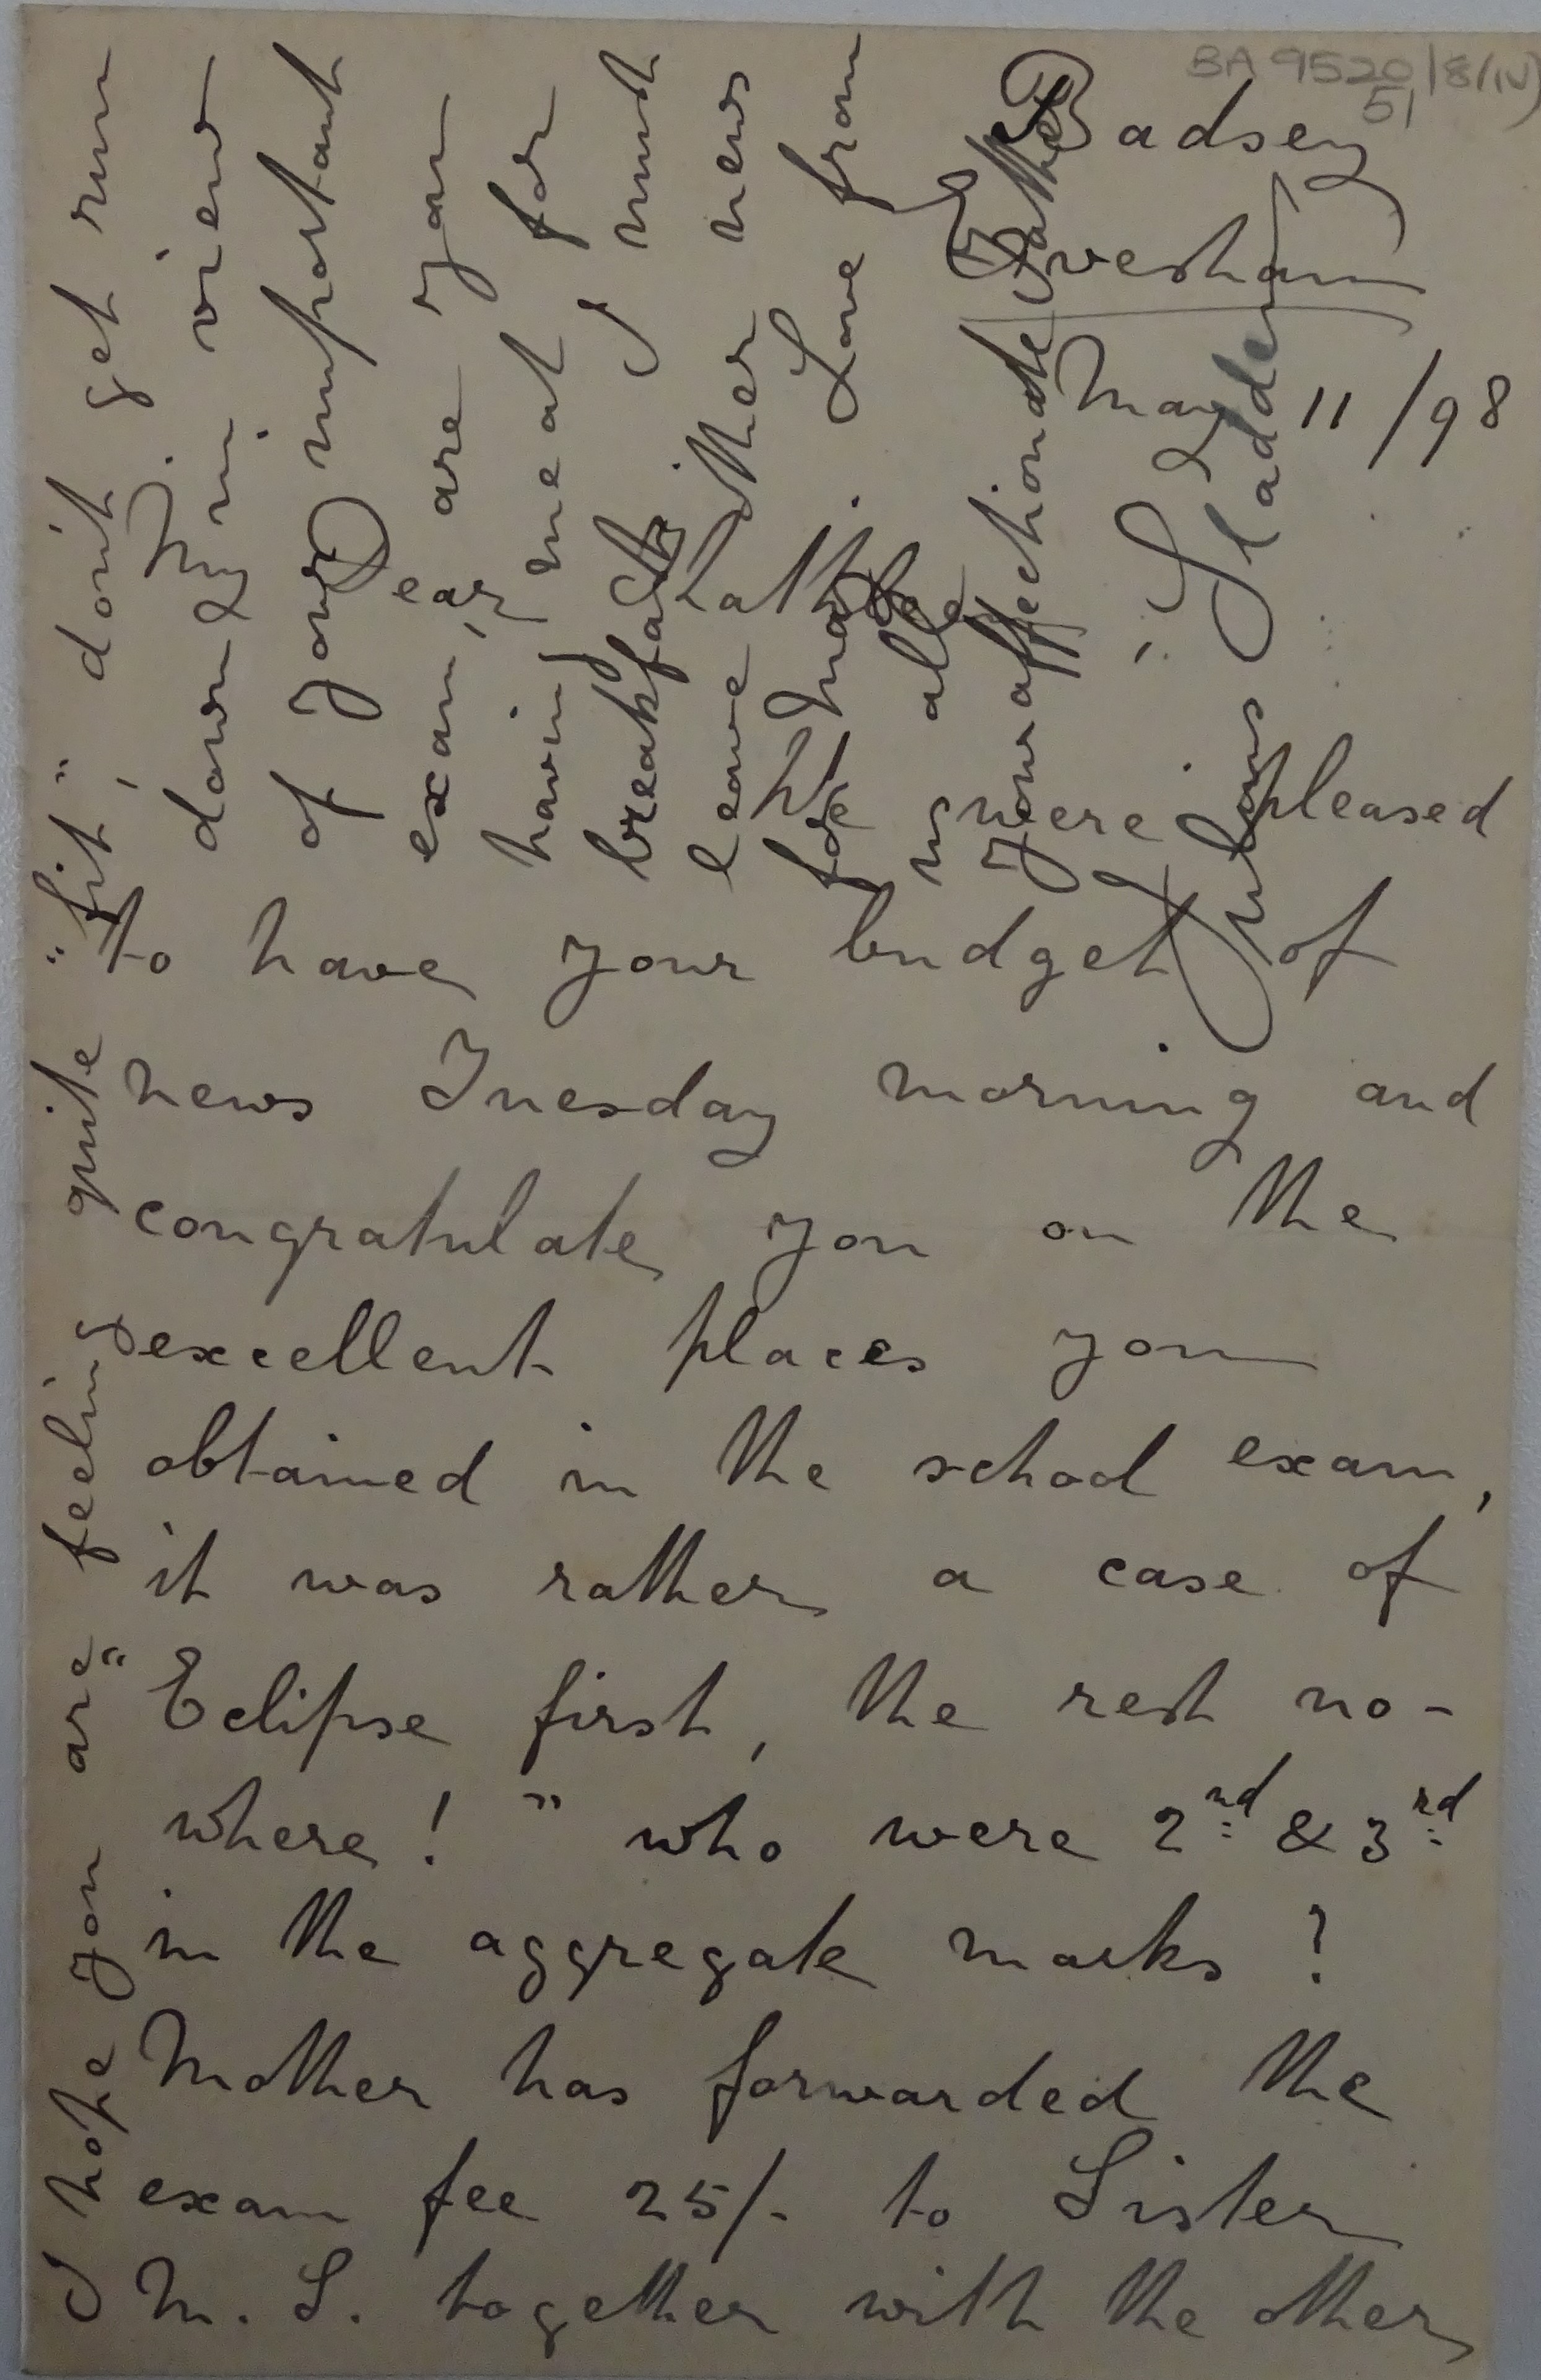 BA 9520/8(IV)
51
Badsey
Evesham
May 11/98
My Dear Kathleen
We were pleased
to have your budget of
news Tuesday morning and
congratulate you on the
excellent places you
obtained in the school exam,
it was rather a case of
"Eclipse first, the rest no-
where!" who were 2nd & 3rd
in the aggregate marks?
Mother has forwarded the
exam fee 25/- to Sister
M. L. together with the other
I hope you are feeling quite "fit", don't get run
down in view
of your important
exam, are you
having meat for
breakfast? I must
leave other news
for May. Love from
us all
Your affectionate Father
Julius Sladden